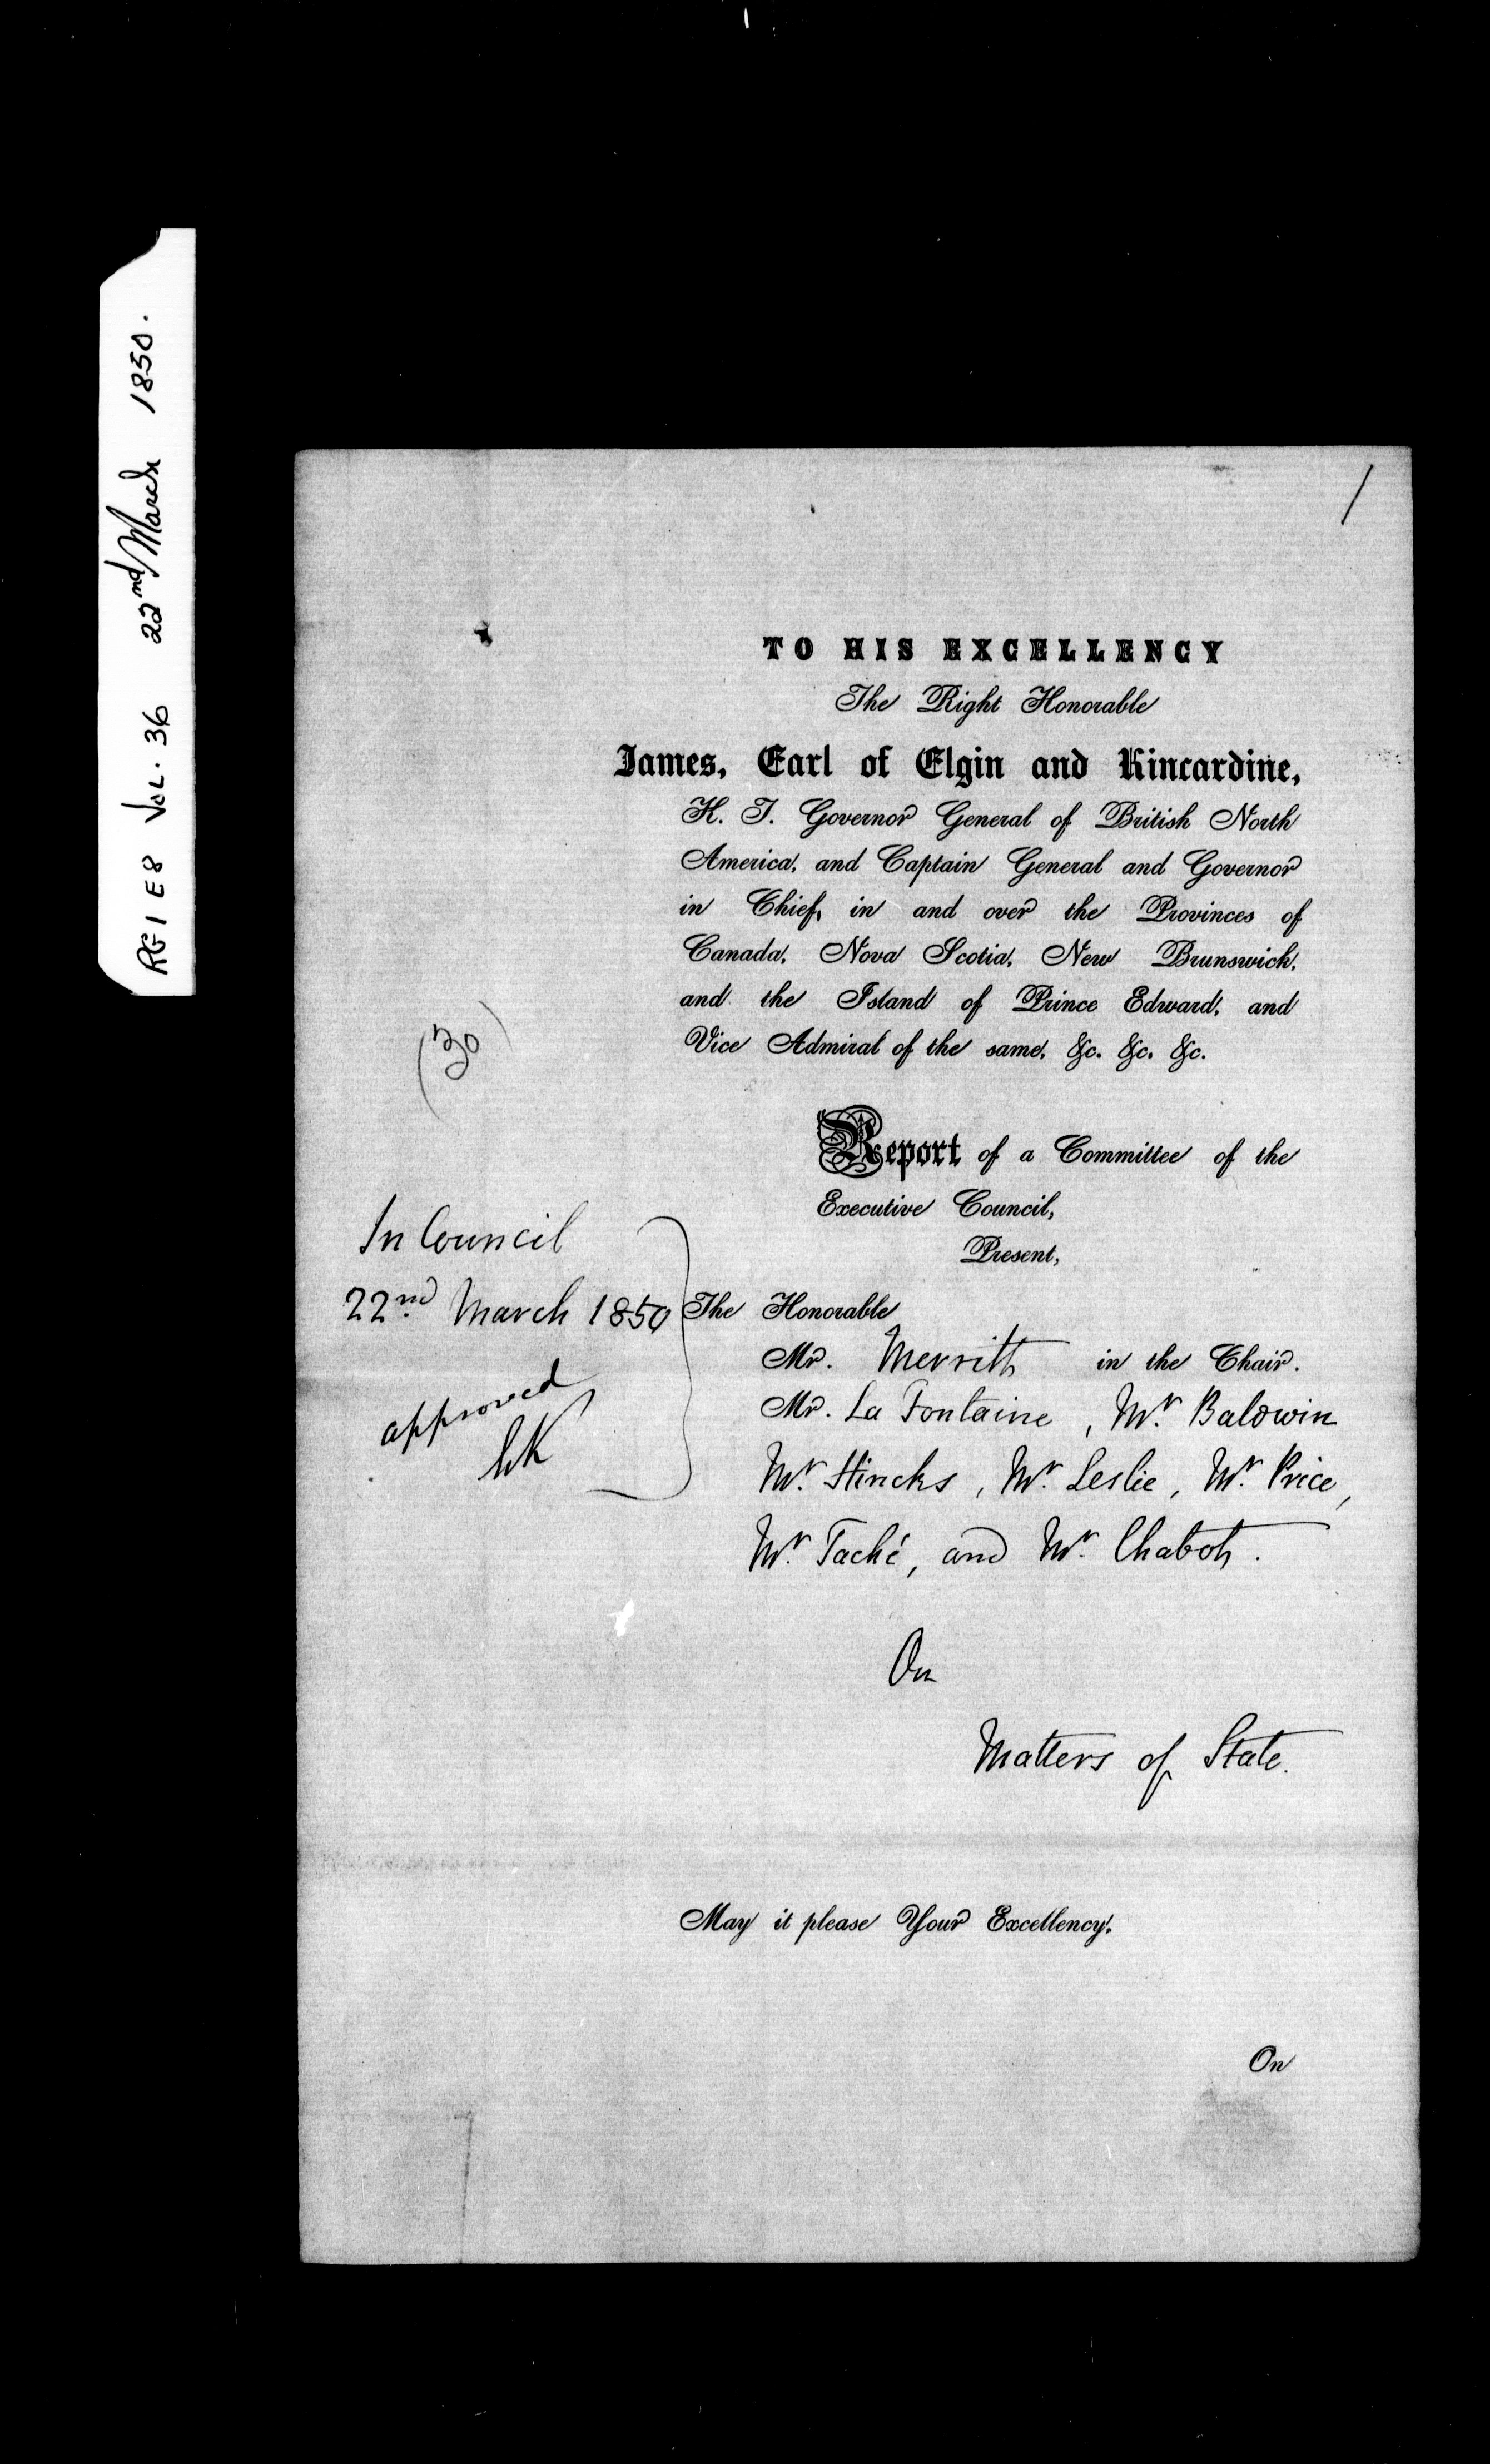 RG 1 E8 VOL. 36 22nd March 1850.
1
TO HIS EXCELLENCY
The Right Honorable
James, Earl of Elgin and Kincardine,
K. T. Governor General of British North
America, and Captain General and Governor
in Chief, in and over the Provinces of
Canada, Nova Scotia, New Brunswick,
and the Island of Prince Edward, and
Vice Admiral of the same, &c. &c. &c.
(30)
Report of a Committee of the
Executive Council,
Present,
In Council
22nd March 1850
approved
The Honorable
Mr. Merritt in the Chair.
Mr. La Fontaine, Mr. Baldwin
Mr. Hincks, Mr. Leslie, Mr. Price,
Mr. Taché, and Mr. Chabot.
On
Matters of State.
May it please Your Excellency,
On